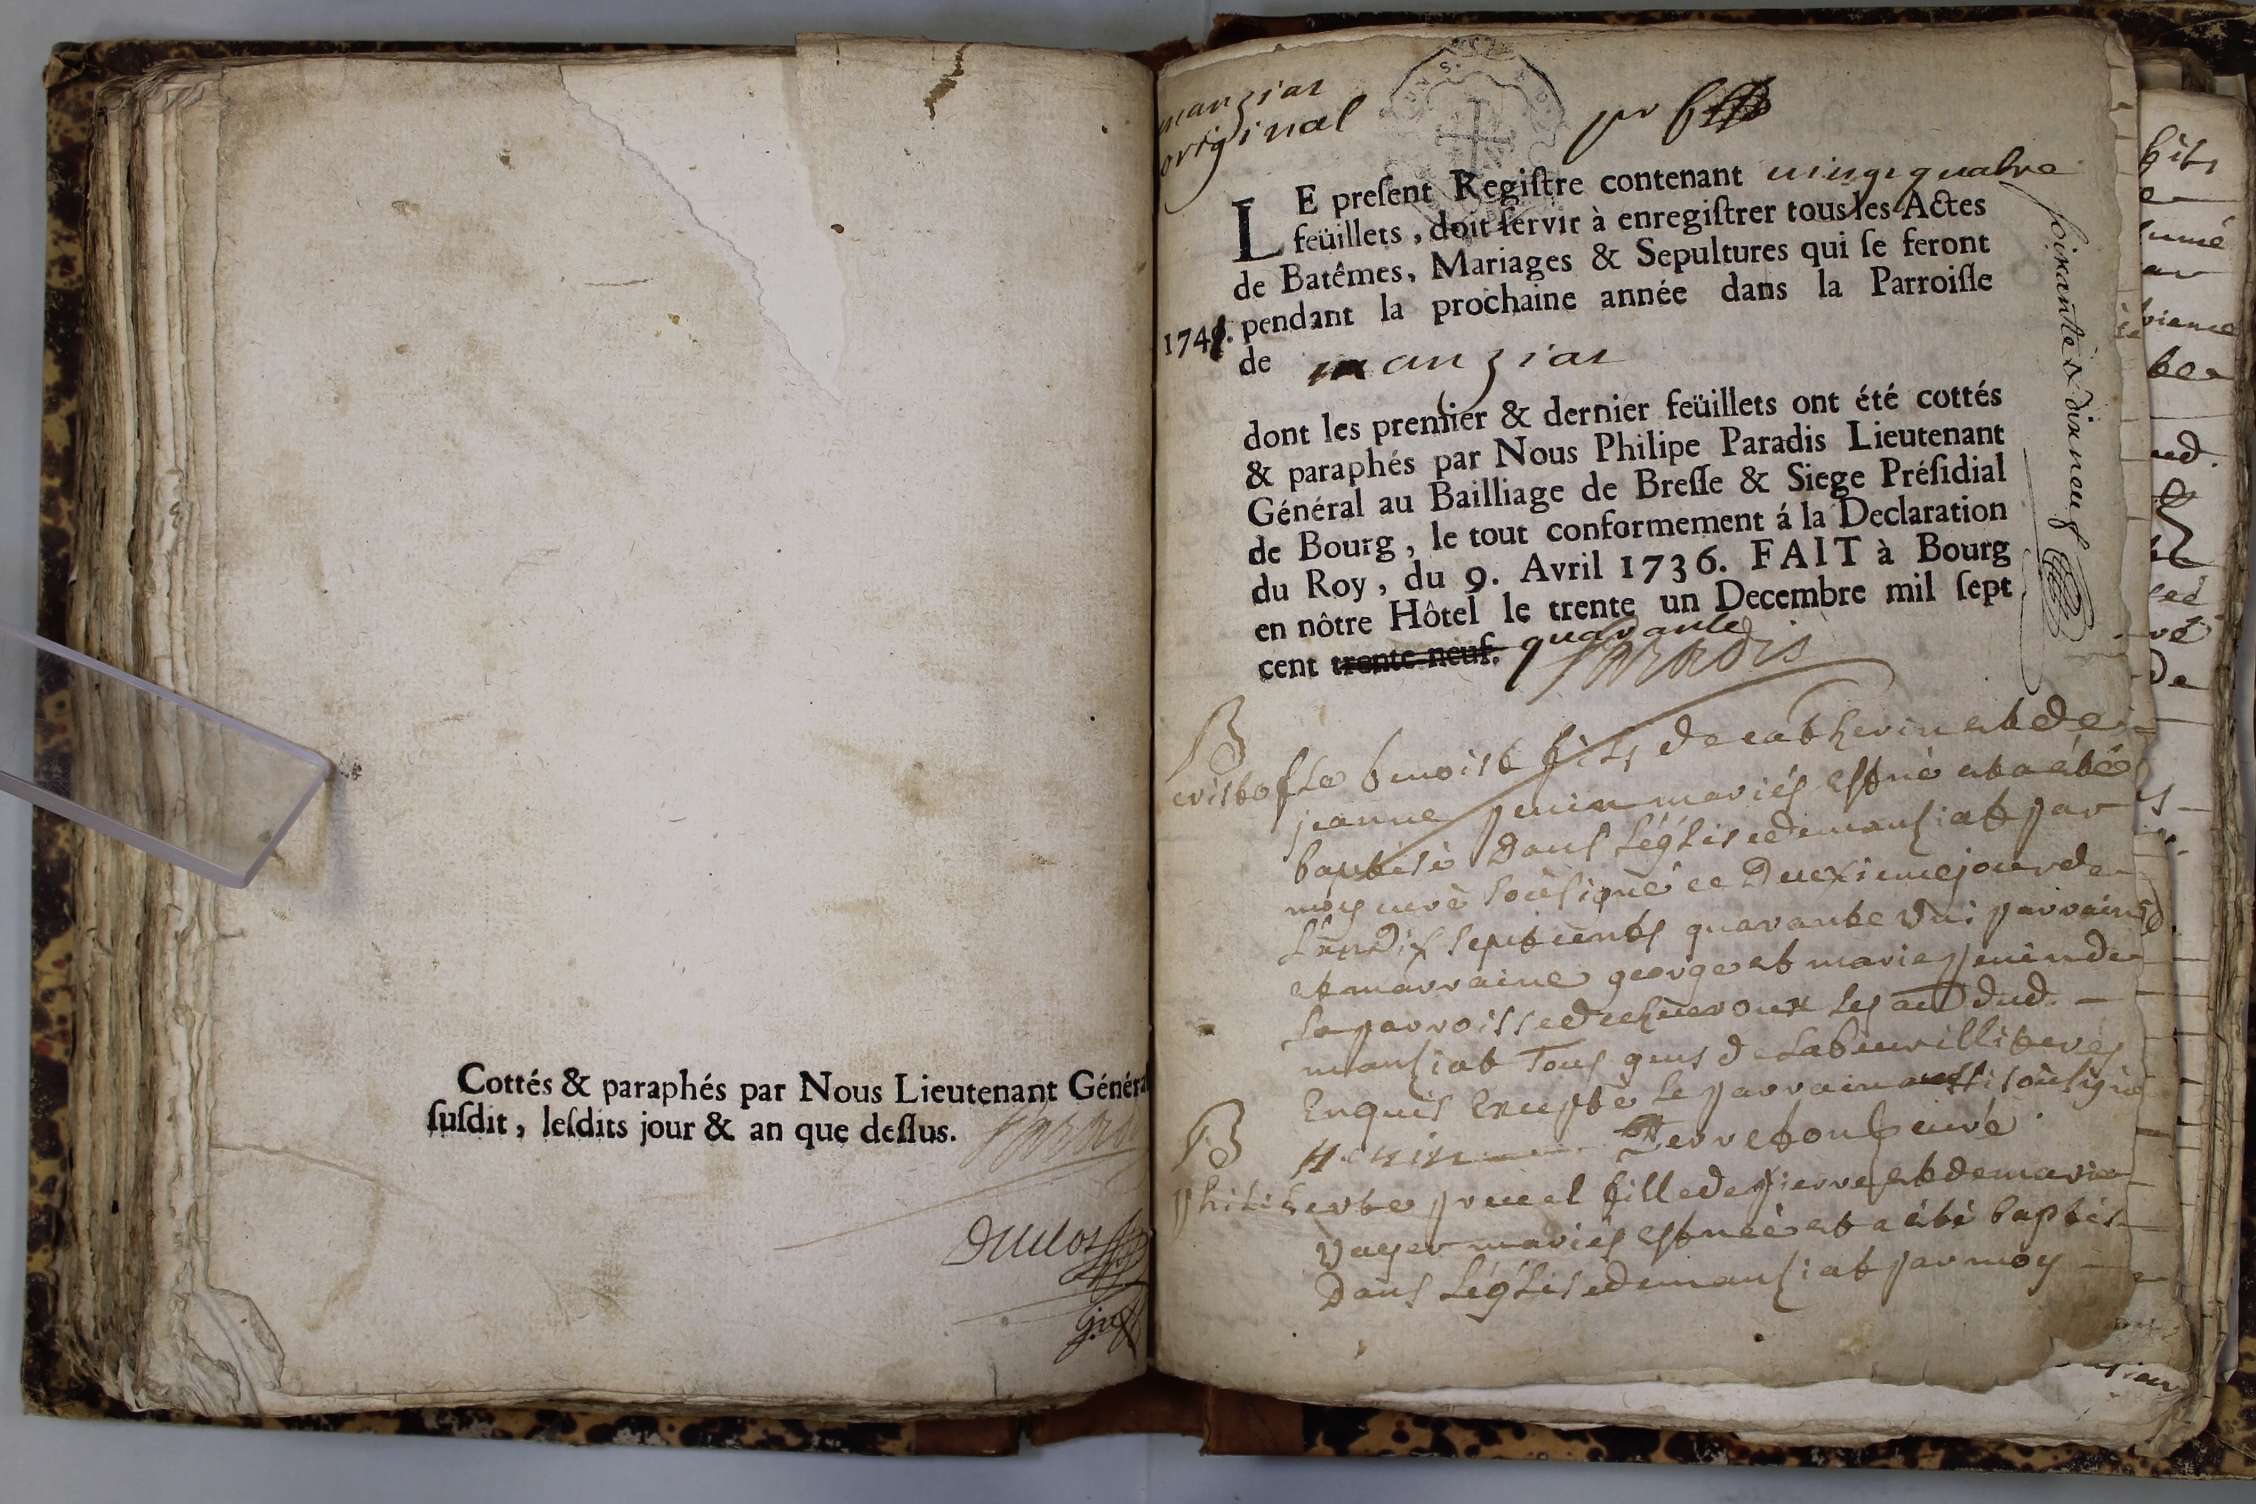 Cottés & paraphés par Nous Lieutenant Généra
susdit, lesdits jour & an que dessus.
Parad
Duclos
manziat
original
LE present Registre contenant vingt quatre
feüillets, doit servir à enregistrer tous les Actes
de Batêmes, Mariages & Sepultures qui se feront
1741. pendant la prochaine année dans la Parroisse
de manziat
dont les premier & dernier feüillets ont été cottés
& paraphés par Nous Philipe Paradis Lieutenant
Général au Bailliage de Bresse & Siege Présidial
de Bourg, le tout conformement á la Declaration
du Roy, du 9. Avril 1736. FAIT à Bourg
en nôtre Hôtel le trente un Decembre mil sept
cent trente neuf. quarante
Paradis
soixante & dix neuf
B
cristofle benoist fils de catherin et de
jeanne penin mariés est né et a été
baptisé dans l'église de manziat par
moy curé sousigné ce deuxieme jour de
l'an dix sept cents quarante un parrain
et marraine george et marie penin de
la parroisse de chevroux les aud dud.
manziat tous gens de labeur illiterés
enquis excepté le parrain aussi sousigné
penin Perreton curé
B
philiberte prucel fille de pierre et de marie
voyer mariés est née et a été baptis
dans l'église de manziat par moy